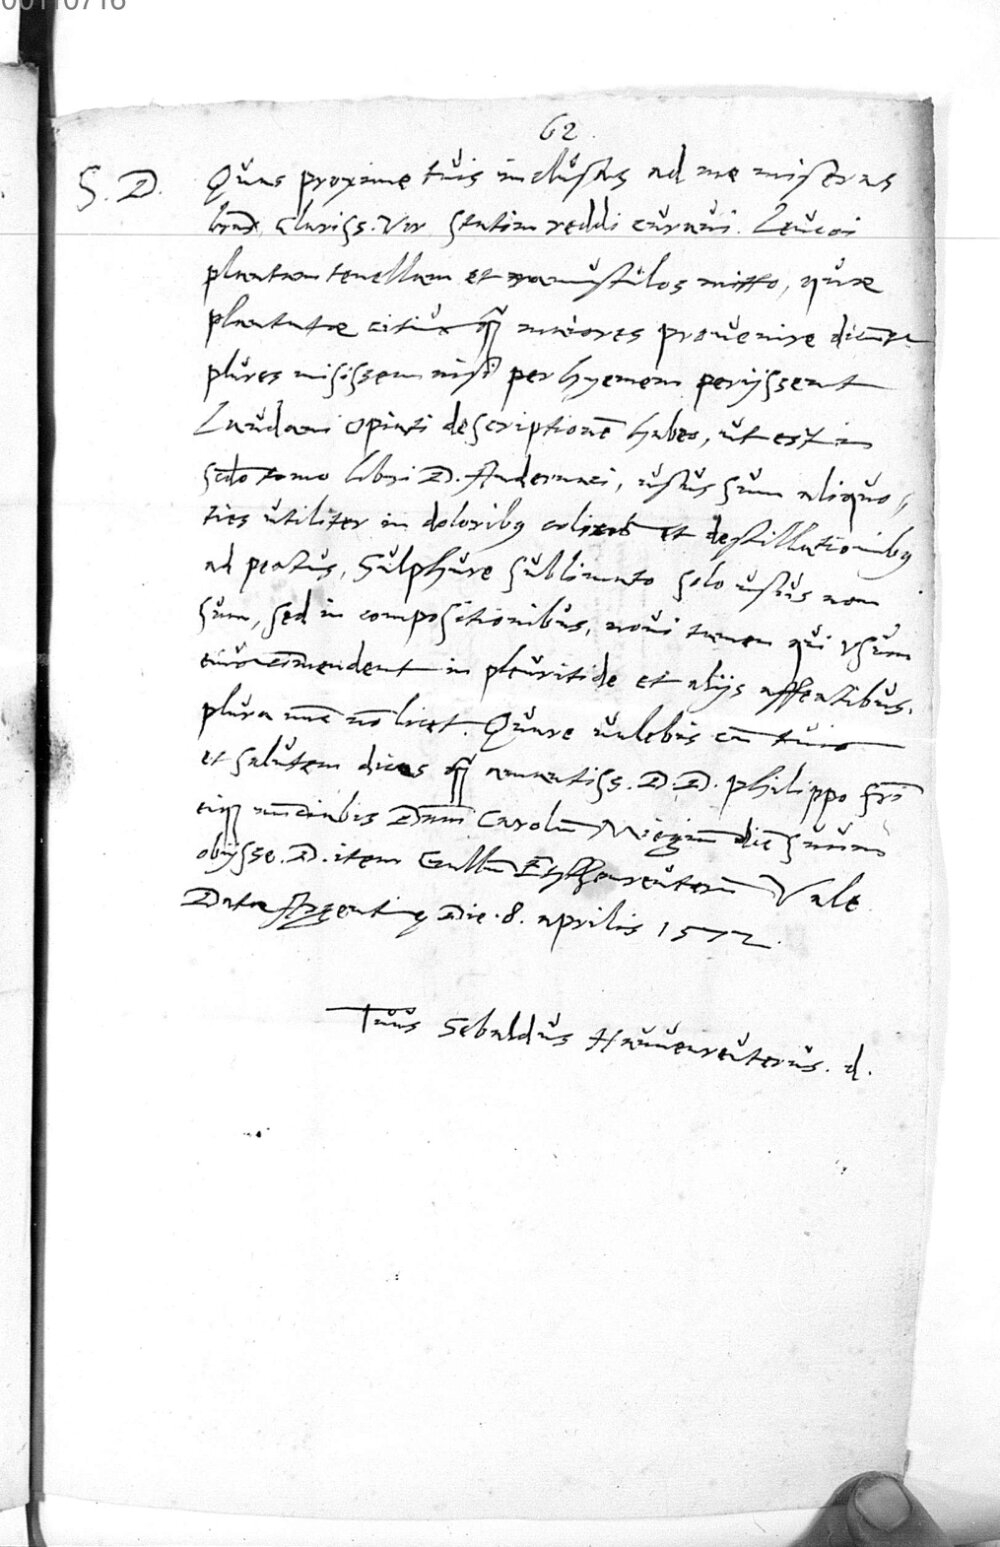 00110716
62.
S. D. Quas proxime tuis inclusas ad me miseras
Clariss. Vir statim reddi curavi. Leucoi
plantam tenellam et ramusculos mitto, quae
plantatae citius q̃ maiores provenire dicunt
plures misissem nisi per hyemem perijssent
Laudani opiati descriptionẽ habeo, ut est in
scdo tomo libri D. Andernaci, usus sum aliquo,
ties utiliter in doloribus et destillationibus
ad pectus, Sulphure sublimato solo usus non
sum, sed in compositionibus, novi tamen qui usum
eius com̃endent in pleuritide et alijs affectibus.
plura nũc nõ licet. Quare valebis cũ tuis
et salutem dices amantiss. D. D. philippo frĩ
nũciabis Carolũ Miegium suum
obijsse. D. item Gallũ Vale
Datae Argentinę Die .8. aprilis 1572.
Tuus Sebaldus Hauuenreuterus. d.